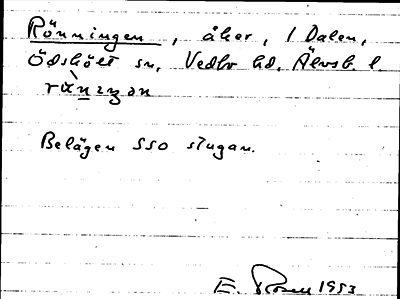 Rönningen, åker, 1 Dalen,
Ödskölt sn, Vedbo hd, Älvsb. l.
Belägen SSO stugan.
E. 1953